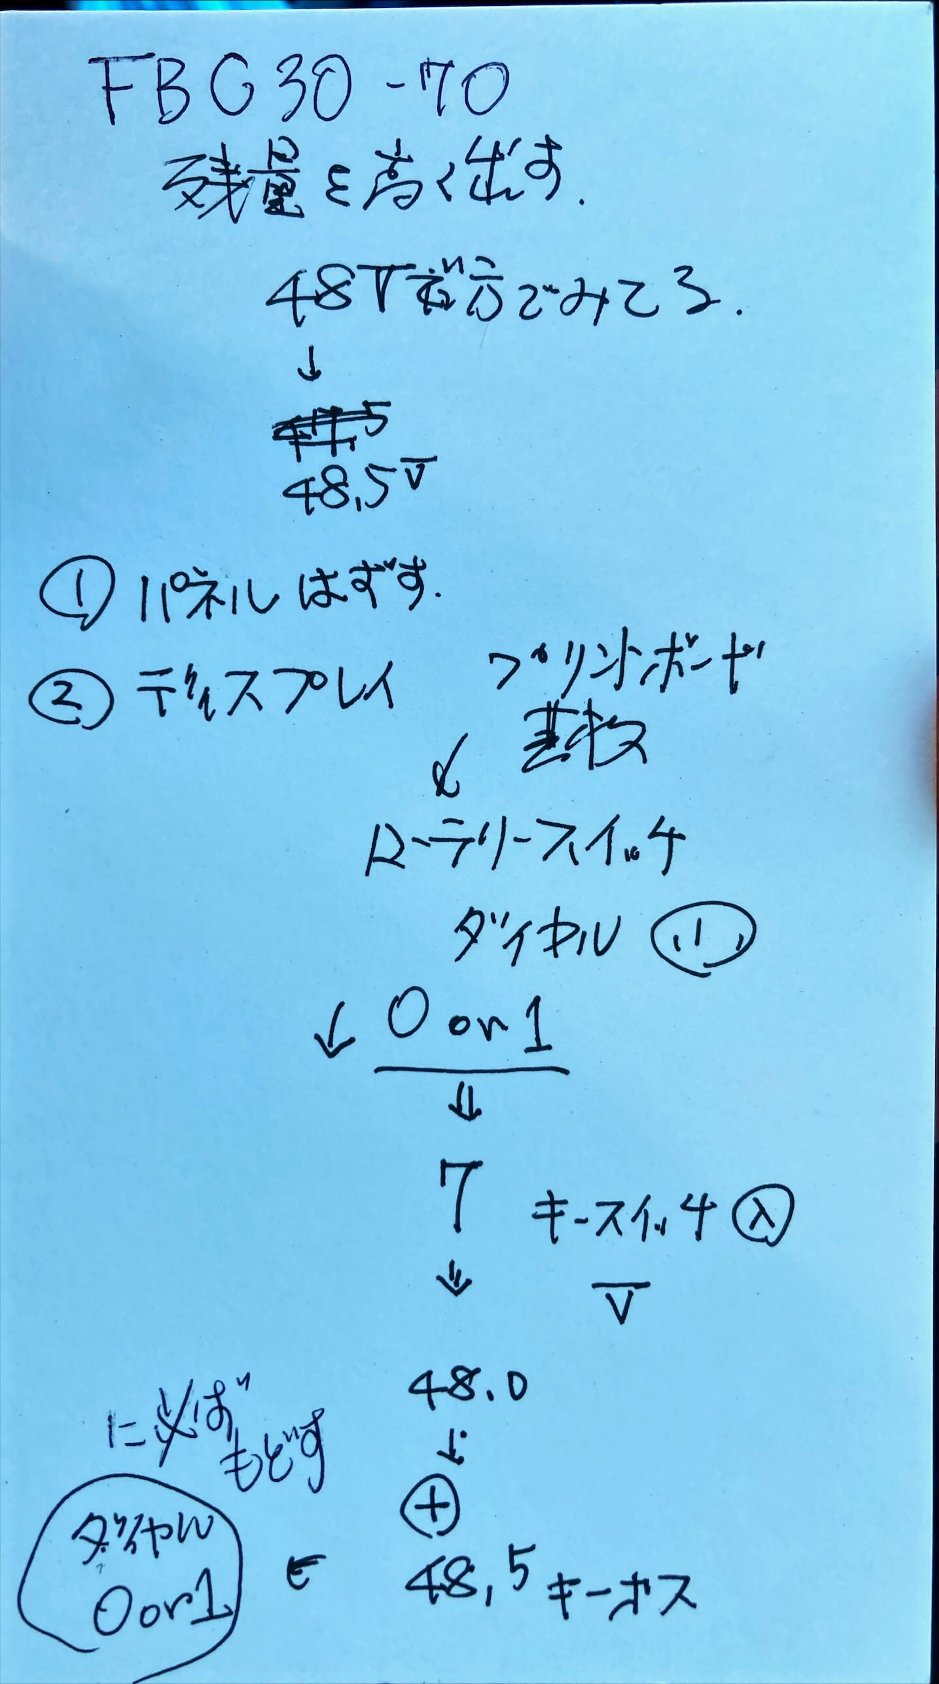 FBC30-70
残量を高く出す.
48Vボ方でみてる.
↓
48.5V
① パネルはずす.
② ディスプレイ プリントボード
基板
↓
ロータリースイッチ
ダイヤル 小
↓ 0 or 1
⇓
7 キースイッチ 入
↓ V
48.0
↓
⊕
48,5 キーオス
← ダイヤル
0 or 1
に必ず
もどす